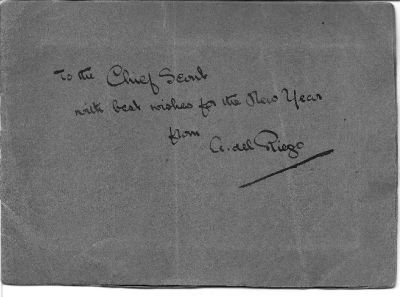 To the Chief Scout
with best wishes for the New Year
from
A. del Riego